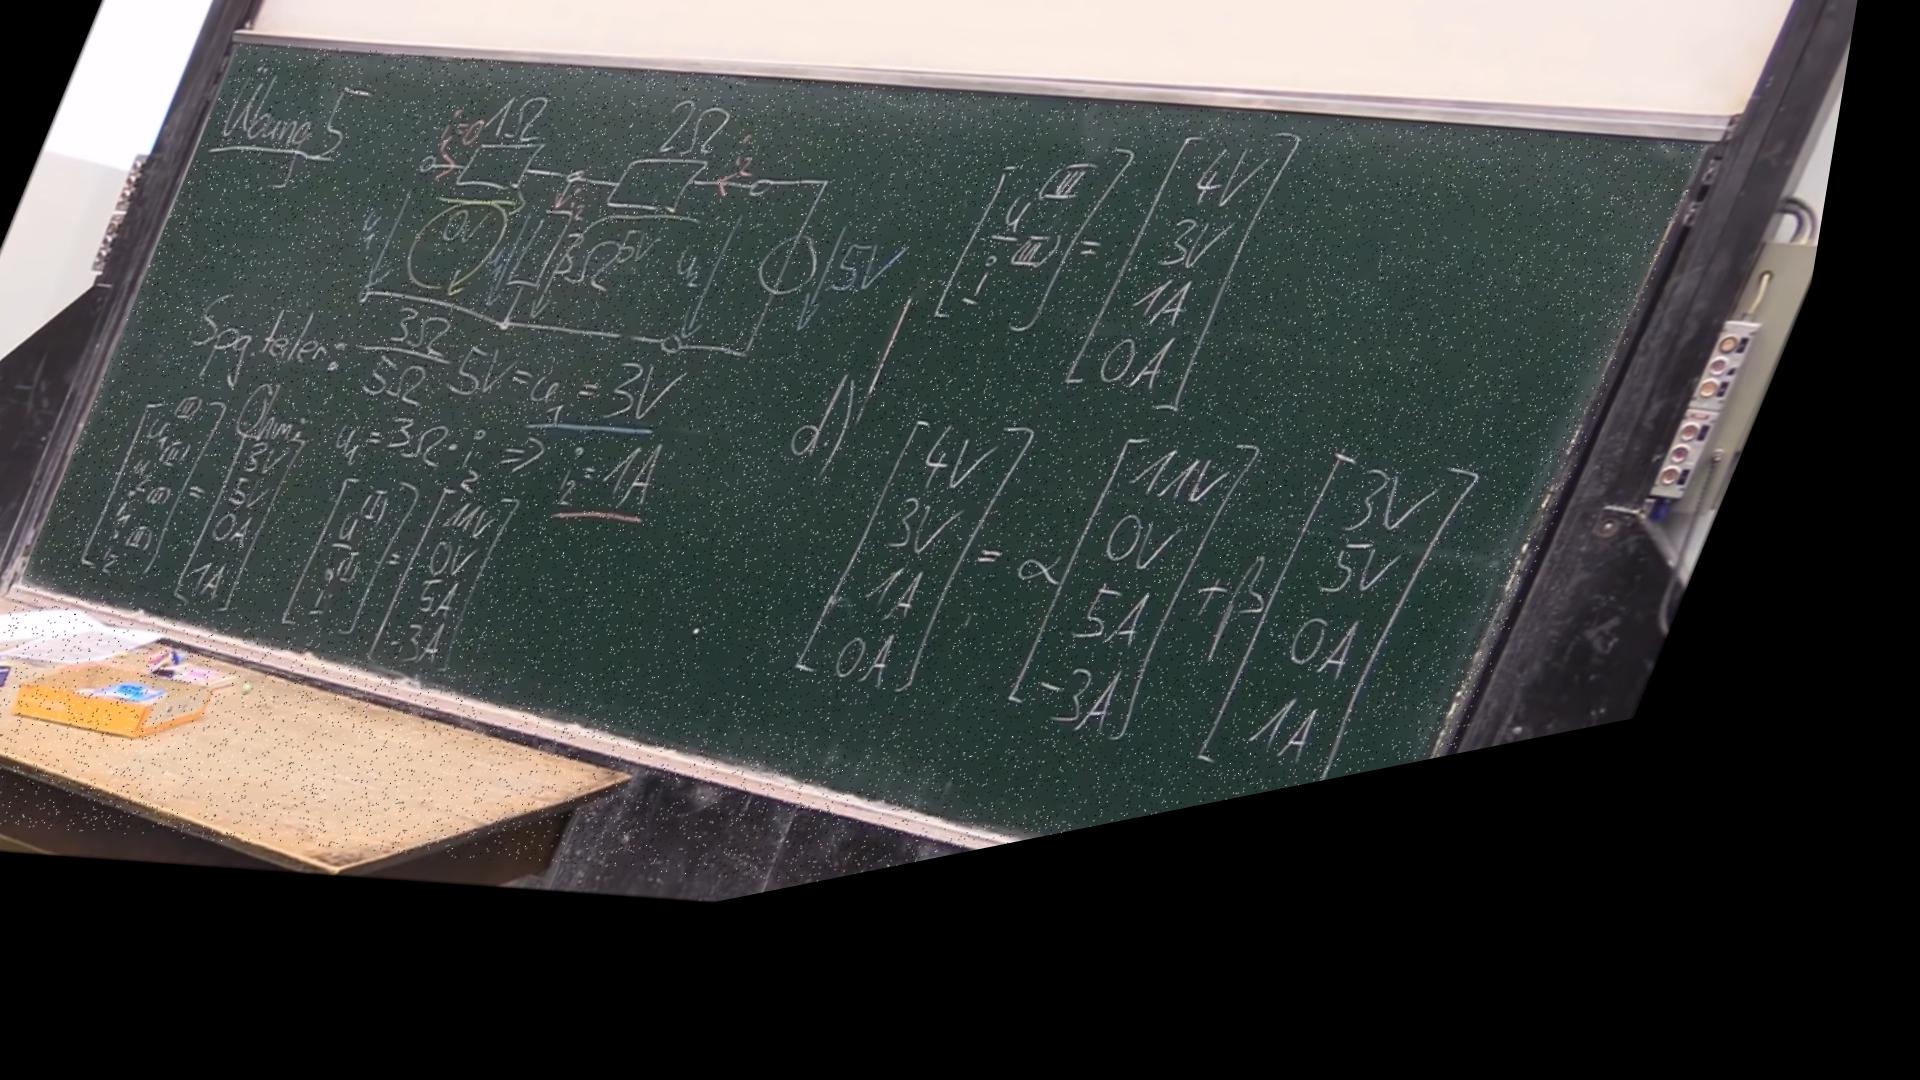 Übung 5
i=0 1Ω 2Ω i2
i2
u1 0V u1 3Ω 5V u2 5V
Spg.teiler: 3Ω/5Ω 5V = u1 = 3V
Ohm: u1 = 3Ω · i2 ⇒ i2 = 1A
[u1(II) u2(II) i1(II) i2(II)] = [3V 5V 0A 1A]
[u(I) i(I)] = [11V 0V 5A -3A]
[u(III) i(III)] = [4V 3V 1A 0A]
d)
[4V 3V 1A 0A] = α [11V 0V 5A -3A] + β [3V 5V 0A 1A]